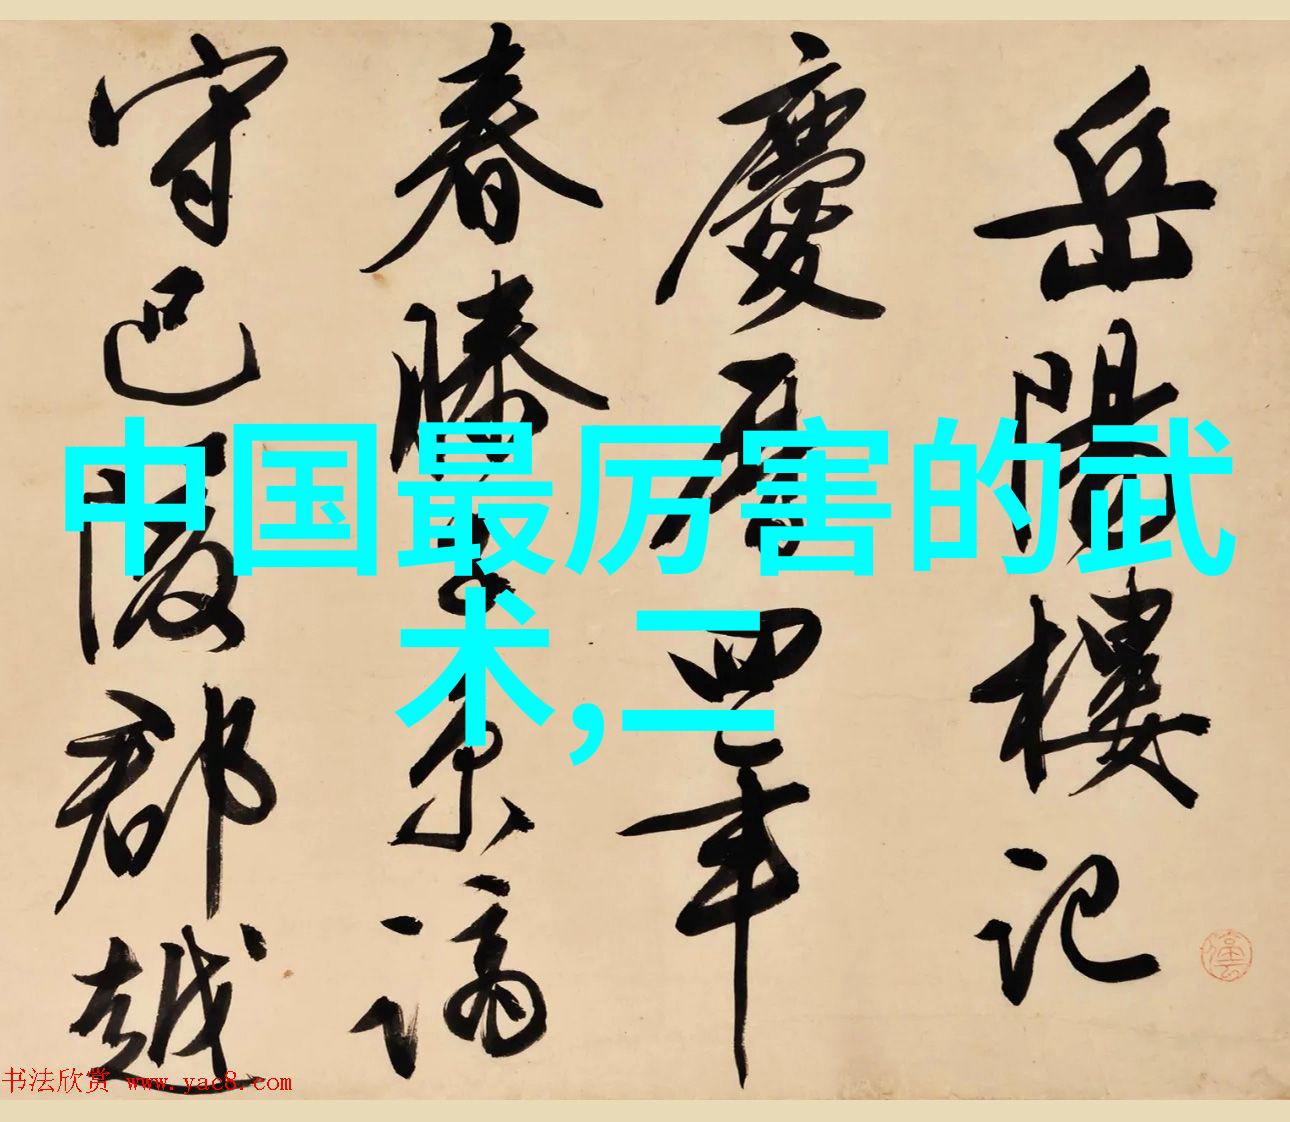 岳陽樓記
慶曆四年
春滕子京謫
守巴陵郡越
中国最厉害的武
术,二
书法欣赏 www.yac8.com